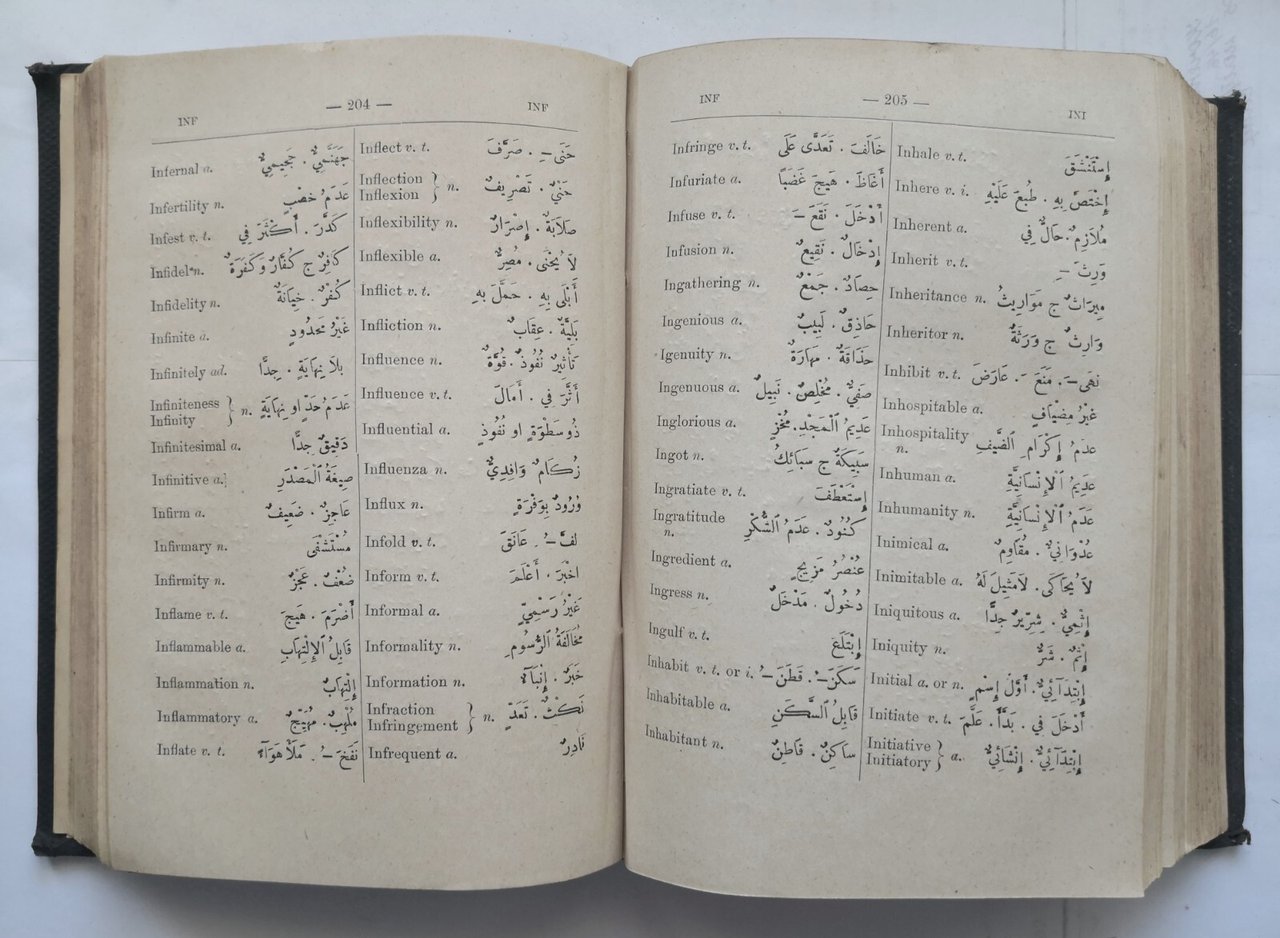 INF — 204 — INF
Infernal a. جَهَنَّمِيٌّ . جَحِيمِيٌّ
Infertility n. عَدَمُ خِصْبٍ
Infest v. t. كَدَّرَ . أَكْثَرَ فِي
Infidel n. كَافِرٌ ج كُفَّارٌ وَكَفَرَةٌ
Infidelity n. كُفْرٌ . خِيَانَةٌ
Infinite a. غَيْرُ مَحْدُودٍ
Infinitely ad. بِلاَ نِهَايَةٍ . جِدًّا
Infiniteness
Infinity } n. عَدَمُ حَدٍّ او نِهَايَةٍ
Infinitesimal a. دَقِيقٌ جِدًّا
Infinitive a. صِيغَةُ ٱلْمَصْدَرِ
Infirm a. عَاجِزٌ . ضَعِيفٌ
Infirmary n. مُسْتَشْفَى
Infirmity n. ضُعْفٌ . عَجْزٌ
Inflame v. t. أَضْرَمَ . هَيَّجَ
Inflammable a. قَابِلُ ٱلْإِلْتِهَابِ
Inflammation n. إِلْتِهَابٌ
Inflammatory a. مُلْهِبٌ . مُهَيِّجٌ
Inflate v. t. نَفَخَ ـُ . مَلَأَ هَوَآءً
Inflect v. t. حَنَى ـِ . صَرَّفَ
Inflection
Inflexion } n. حَنْيٌ . تَصْرِيفٌ
Inflexibility n. صَلَابَةٌ . إِصْرَارٌ
Inflexible a. لاَ يُحْنَى . مُصِرٌّ
Inflict v. t. أَبْلَى بِهِ . حَمَّلَ بِهِ
Infliction n. بَلِيَّةٌ . عِقَابٌ
Influence n. تَأْثِيرٌ . نُفُوذٌ . قُوَّةٌ
Influence v. t. أَثَّرَ فِي . أَمَالَ
Influential a. ذُو سَطْوَةٍ او نُفُوذٍ
Influenza n. زُكَامٌ وَافِدِيٌّ
Influx n. وُرُودٌ بِوَفْرَةٍ
Infold v. t. لَفَّ ـُ . عَانَقَ
Inform v. t. اخْبَرَ . أَعْلَمَ
Informal a. غَيْرُ رَسْمِيٍّ
Informality n. مُخَالَفَةُ ٱلرُّسُومِ
Information n. خَبَرٌ . إِنْبَآءٌ
Infraction
Infringement } n. نَكْثٌ . تَعَدٍّ
Infrequent a. نَادِرٌ
INF — 205 — INI
Infringe v. t. خَالَفَ . تَعَدَّى عَلَى
Infuriate a. أَغَاظَ . هَيَّجَ غَضَبًا
Infuse v. t. أَدْخَلَ . نَقَعَ ـَ
Infusion n. إِدْخَالٌ . نَقِيعٌ
Ingathering n. حِصَادٌ . جَمْعٌ
Ingenious a. حَاذِقٌ . لَبِيبٌ
Igenuity n. حَذَاقَةٌ . مَهَارَةٌ
Ingenuous a. صَفِيٌّ . مُخْلِصٌ . نَبِيلٌ
Inglorious a. عَدِيمُ ٱلْمَجْدِ . مُخْزٍ
Ingot n. سَبِيكَةٌ ج سَبَائِكُ
Ingratiate v. t. إِسْتَعْطَفَ
Ingratitude
n. كُنُودٌ . عَدَمُ ٱلشُّكْرِ
Ingredient a. عُنْصُرُ مَزِيجٍ
Ingress n. دُخُولٌ . مَدْخَلٌ
Ingulf v. t. إِبْتَلَعَ
Inhabit v. t. or i. سَكَنَ ـُ . قَطَنَ ـُ
Inhabitable a. قَابِلُ ٱلسَّكَنِ
Inhabitant n. سَاكِنٌ . قَاطِنٌ
Inhale v. t. إِسْتَنْشَقَ
Inhere v. i. إِخْتَصَّ بِهِ . طُبِعَ عَلَيْهِ
Inherent a. مُلَازِمٌ . حَالٌّ فِي
Inherit v. t. وَرِثَ ـِ
Inheritance n. مِيرَاثٌ ج مَوَارِيثُ
Inheritor n. وَارِثٌ ج وَرَثَةٌ
Inhibit v. t. نَهَى ـَ . مَنَعَ ـَ . عَارَضَ
Inhospitable a. غَيْرُ مِضْيَافٍ
Inhospitality
n. عَدَمُ إِكْرَامِ ٱلضَّيْفِ
Inhuman a. عَدِيمُ ٱلْإِنْسَانِيَّةِ
Inhumanity n. عَدَمُ ٱلْإِنْسَانِيَّةِ
Inimical a. عُدْوَانِيٌّ . مُقَاوِمٌ
Inimitable a. لاَ يُحَاكَى . لاَ مَثِيلَ لَهُ
Iniquitous a. إِثْمِيٌّ . شِرِّيرٌ جِدًّا
Iniquity n. إِثْمٌ . شَرٌّ
Initial a. or n. إِبْتِدَآئِيٌّ . أَوَّلُ إِسْمٍ
Initiate v. t. أَدْخَلَ فِي . بَدَأَ . عَلَّمَ
Initiative
Initiatory } a. إِبْتِدَآئِيٌّ . إِنْشَائِيٌّ